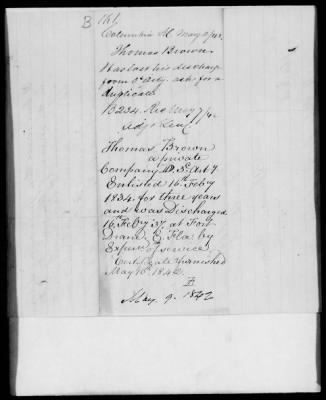 B 161
Columbia May 2/42
Thomas Brown
Has lost his discharge
from 3d Arty. asks for a
duplicate
B 234. Rec May 7/42
Thomas Brown
a private
Company D. 3d Arty
Enlisted 16th Feby
1834. for three years
and was Discharged
16th Feby 37 at Fort
E. Fla by
Expn of service
Certificate furnished
May 10th 1842.
May. 9. 1842